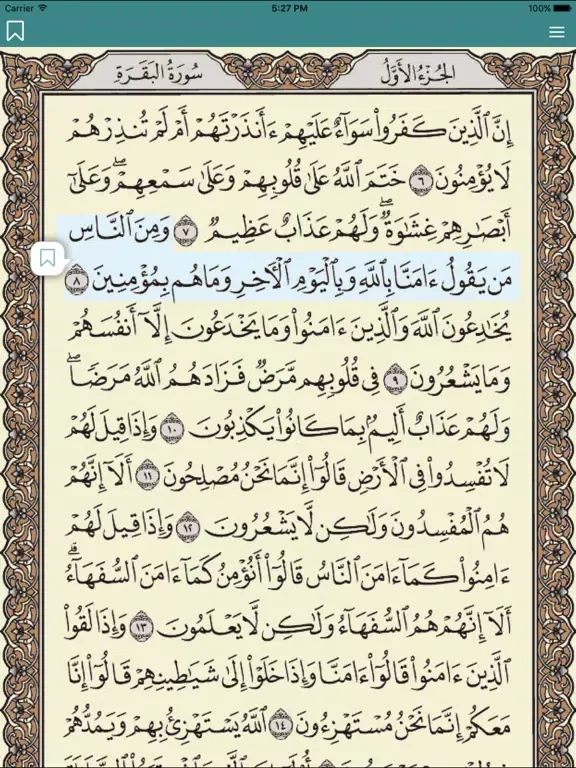 Carrier 5:27 PM 100%
الجُزْءُ الأَوَّلُ سُورَةُ البَقَرَةِ
إِنَّ ٱلَّذِينَ كَفَرُوا۟ سَوَآءٌ عَلَيْهِمْ ءَأَنذَرْتَهُمْ أَمْ لَمْ تُنذِرْهُمْ
لَا يُؤْمِنُونَ ٦ خَتَمَ ٱللَّهُ عَلَىٰ قُلُوبِهِمْ وَعَلَىٰ سَمْعِهِمْ ۖ وَعَلَىٰٓ
أَبْصَٰرِهِمْ غِشَٰوَةٌ ۖ وَلَهُمْ عَذَابٌ عَظِيمٌ ٧ وَمِنَ ٱلنَّاسِ
مَن يَقُولُ ءَامَنَّا بِٱللَّهِ وَبِٱلْيَوْمِ ٱلْءَاخِرِ وَمَا هُم بِمُؤْمِنِينَ ٨
يُخَٰدِعُونَ ٱللَّهَ وَٱلَّذِينَ ءَامَنُوا۟ وَمَا يَخْدَعُونَ إِلَّآ أَنفُسَهُمْ
وَمَا يَشْعُرُونَ ٩ فِى قُلُوبِهِم مَّرَضٌ فَزَادَهُمُ ٱللَّهُ مَرَضًا ۖ
وَلَهُمْ عَذَابٌ أَلِيمٌۢ بِمَا كَانُوا۟ يَكْذِبُونَ ١٠ وَإِذَا قِيلَ لَهُمْ
لَا تُفْسِدُوا۟ فِى ٱلْأَرْضِ قَالُوٓا۟ إِنَّمَا نَحْنُ مُصْلِحُونَ ١١ أَلَآ إِنَّهُمْ
هُمُ ٱلْمُفْسِدُونَ وَلَٰكِن لَّا يَشْعُرُونَ ١٢ وَإِذَا قِيلَ لَهُمْ
ءَامِنُوا۟ كَمَآ ءَامَنَ ٱلنَّاسُ قَالُوٓا۟ أَنُؤْمِنُ كَمَآ ءَامَنَ ٱلسُّفَهَآءُ ۗ
أَلَآ إِنَّهُمْ هُمُ ٱلسُّفَهَآءُ وَلَٰكِن لَّا يَعْلَمُونَ ١٣ وَإِذَا لَقُوا۟
ٱلَّذِينَ ءَامَنُوا۟ قَالُوٓا۟ ءَامَنَّا وَإِذَا خَلَوْا۟ إِلَىٰ شَيَٰطِينِهِمْ قَالُوٓا۟ إِنَّا
مَعَكُمْ إِنَّمَا نَحْنُ مُسْتَهْزِءُونَ ١٤ ٱللَّهُ يَسْتَهْزِئُ بِهِمْ وَيَمُدُّهُمْ